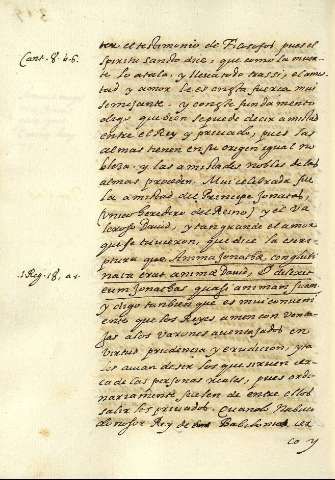 ter el testimonio de Filosofos, pues el
Cant. 8. v. 6.
spiritu sancto dice, que como la muer
te lo atala, y lleva todo tras si, el amis
tad y amor le es en esta fuerca mui
semejante. y con este fundamento
digo que bien se puede decir amistad
entre el Rey y privado, pues las
almas tienen en su origen igual no
bleza. y las amistades nobles de las
almas proceden. Mui celebrada fue
la amistad del Principe Jonatas,
(unico heredero del Reino) y el va
leroso David, y tan grande el amor
que se tuvieron, que dice la escrip
1 Reg. 18,
tura que Anima Jonathæ congluti
nata erat animæ David, & dilexit
eum Jonathas quasi animam suam
y digo tambien que es mui conveni
ente que los Reyes amen con venta
jas a los varones aventajados en
virtud prudencia y erudicion, y ta
les avian de ser los que sirven cer
ca de las personas reales, pues ordi
nariamente suelen de entre ellos
salir los privados. Quando Nabuc
donosor Rey de Babilonia cer
co y